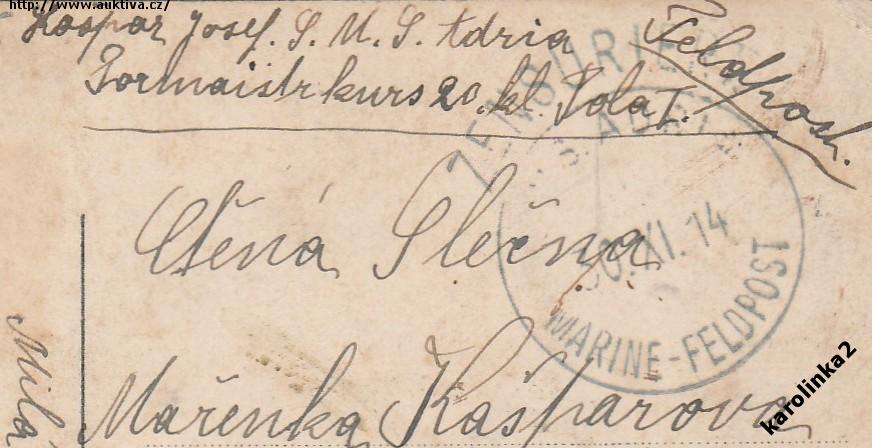 http://www.auktiva.cz/
Kaspar Josef. S. M. S. Adria
Tormaistrkurs 20. kl. Pola I.
Feldpost.
ZENSURIERT
S.M.S. ADRIA
30.XI.14
MARINE-FELDPOST
Ctěná Slečna
Mařenka Kašparova
Milá
karolinka2